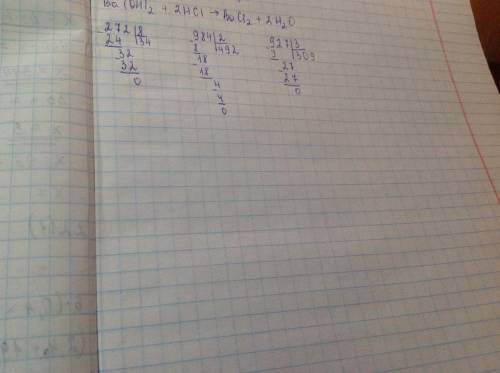 Ba(OH)₂ + 2HCl → BaCl₂ + 2H₂O
272 8 984 2 927 3
24 34 8 492 9 309
32 18 27
32 18 27
0 4 0
4
0